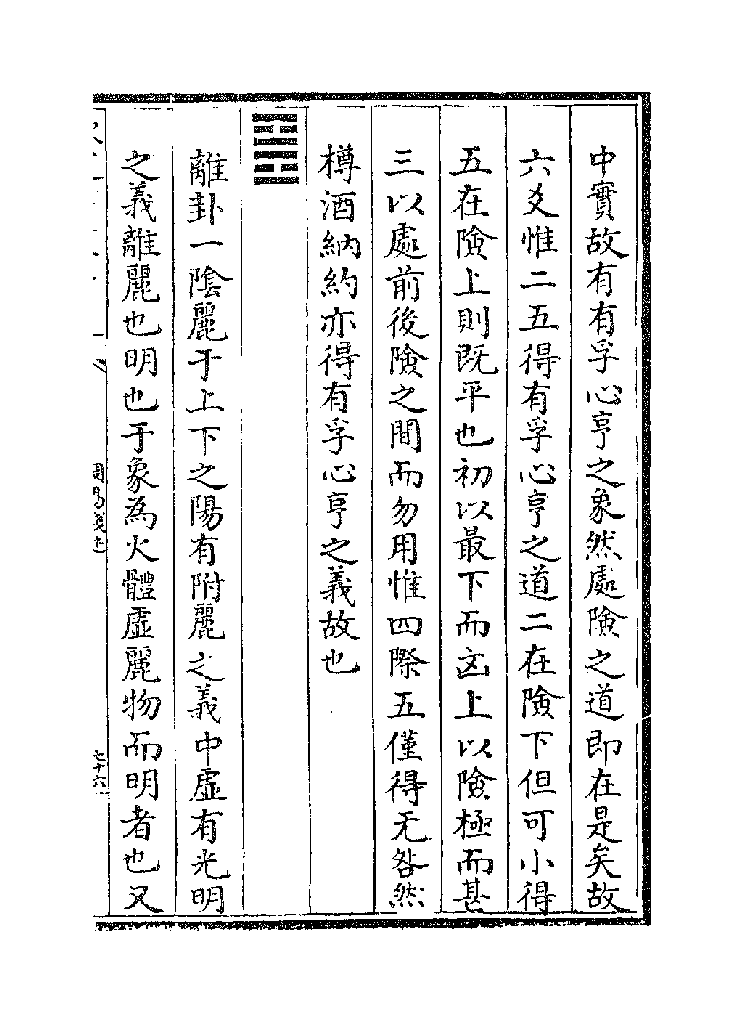 中實故有有孚心亨之象然處險之道即在是矣故
六爻惟二五得有孚心亨之道二在險下但可小得
五在險上則既平也初以最下而凶上以險極而甚
三以處前後險之間而勿用惟四際五僅得无咎然
樽酒納約亦得有孚心亨之義故也
䷝
離卦一陰麗于上下之陽有附麗之義中虛有光明
之義離麗也明也于象為火體虛麗物而明者也又
周易淺述
七十六